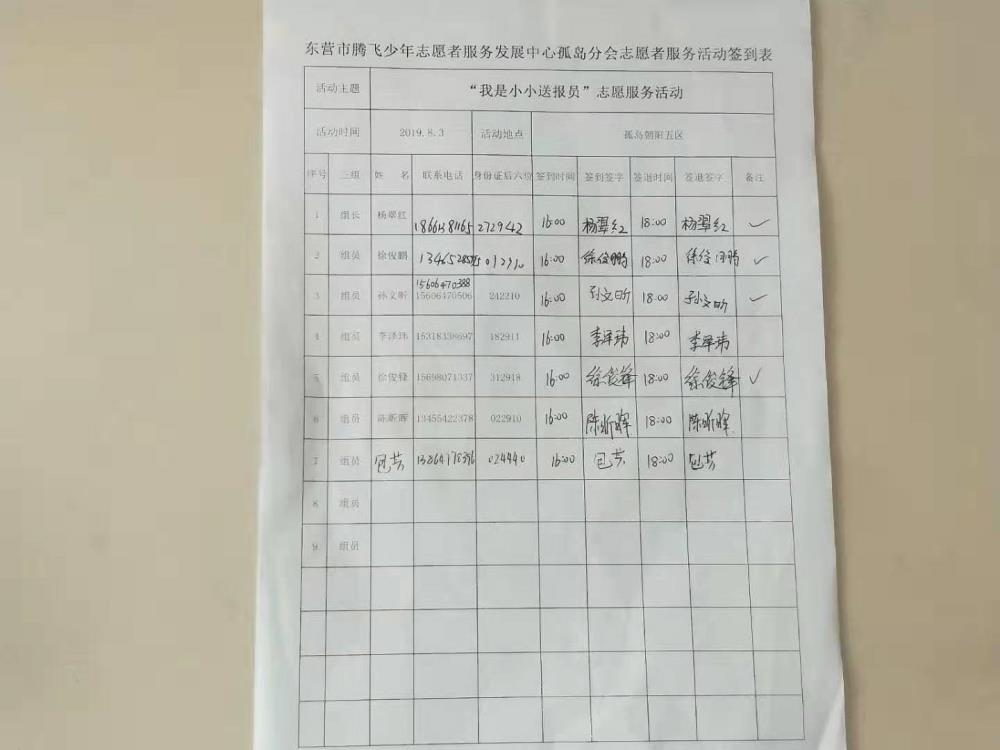 东营市腾飞少年志愿者服务发展中心孤岛分会志愿者服务活动签到表
活动主题 “我是小小送报员”志愿服务活动
活动时间 2019.8.3 活动地点 孤岛朝阳五区
序号 三组 姓 名 联系电话 身份证后六位 签到时间 签到签字 签退时间 签退签字 备注
1 组长 杨翠红 272942 16:00 杨翠红 18:00 杨翠红 ✓
2 组员 徐俊鹏 16:00 徐俊鹏 18:00 徐俊鹏 ✓
15606470388
3 组员 孙文昕 15606470506 242210 16:00 孙文昕 18:00 孙文昕 ✓
4 组员 李泽玮 15318338697 182911 16:00 李泽玮 18:00 李泽玮
5 组员 徐俊锋 15698071337 312918 16:00 徐俊锋 18:00 徐俊锋 ✓
6 组员 陈昕晖 13455422378 022910 16:00 陈昕晖 18:00 陈昕晖
7 组员 包芸 024440 16:00 包芸 18:00 包芸
8 组员
9 组员